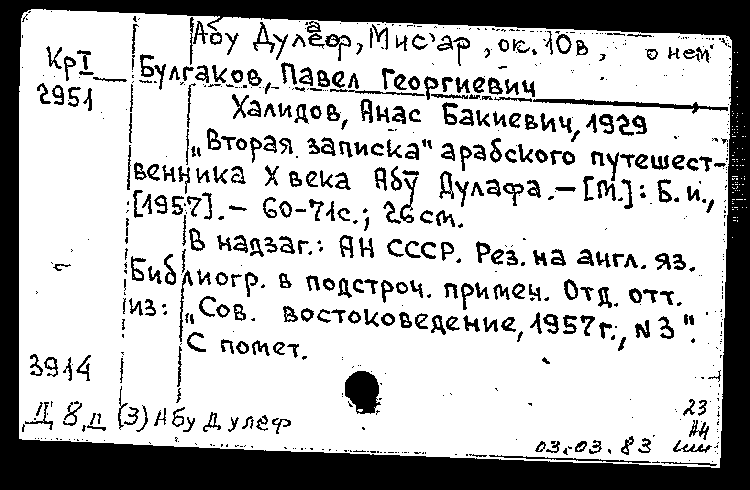 Абу Дулаф, Мис'ар, ок. 10в, о нем
КрI Булгаков, Павел Георгиевич,
2951 Халидов, Анас Бакиевич, 1929
„Вторая записка" арабского путешест-
венника X века Абӯ Дулафа. — [М.]: Б. и.,
[1957]. — 60-71с.; 26см.
В надзаг.: АН СССР. Рез. на англ. яз.
Библиогр. в подстроч. примеч. Отд. отт.
из: „Сов. востоковедение, 1957г., N 3".
С помет.
3914
Д 8д (3) Абу Дулеф
23
АЧ
03.03.83